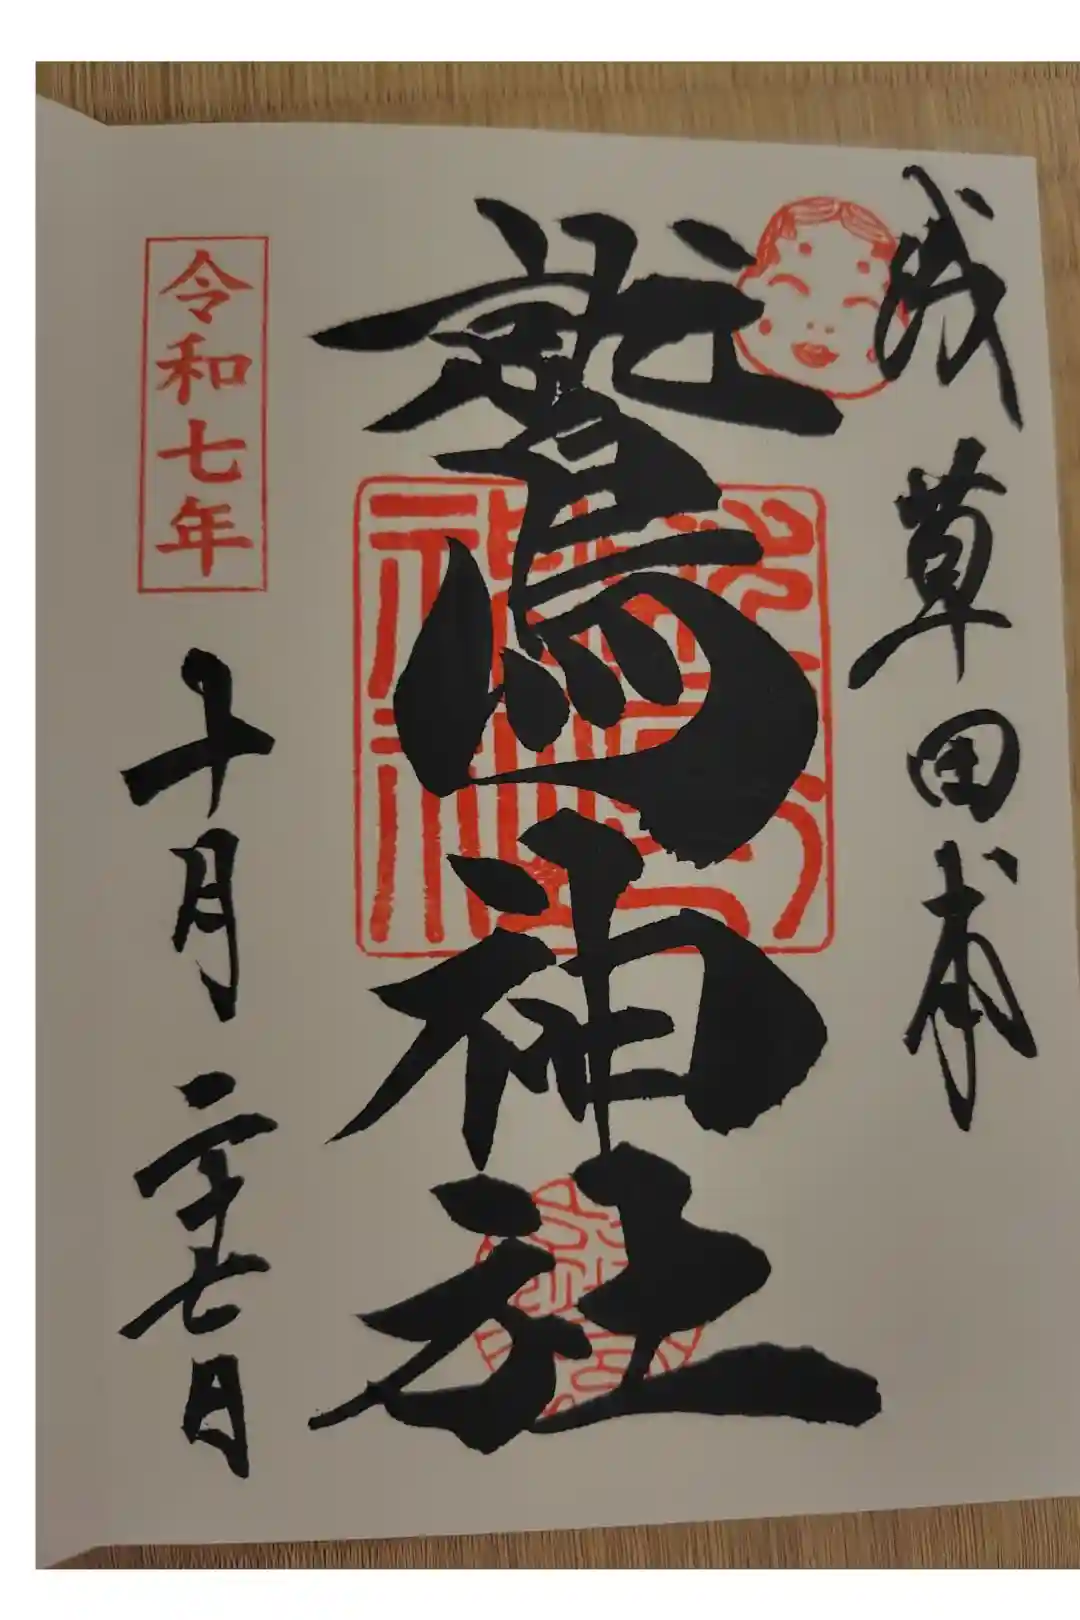 浅草田甫
鷲神社
令和七年
十月二十七日